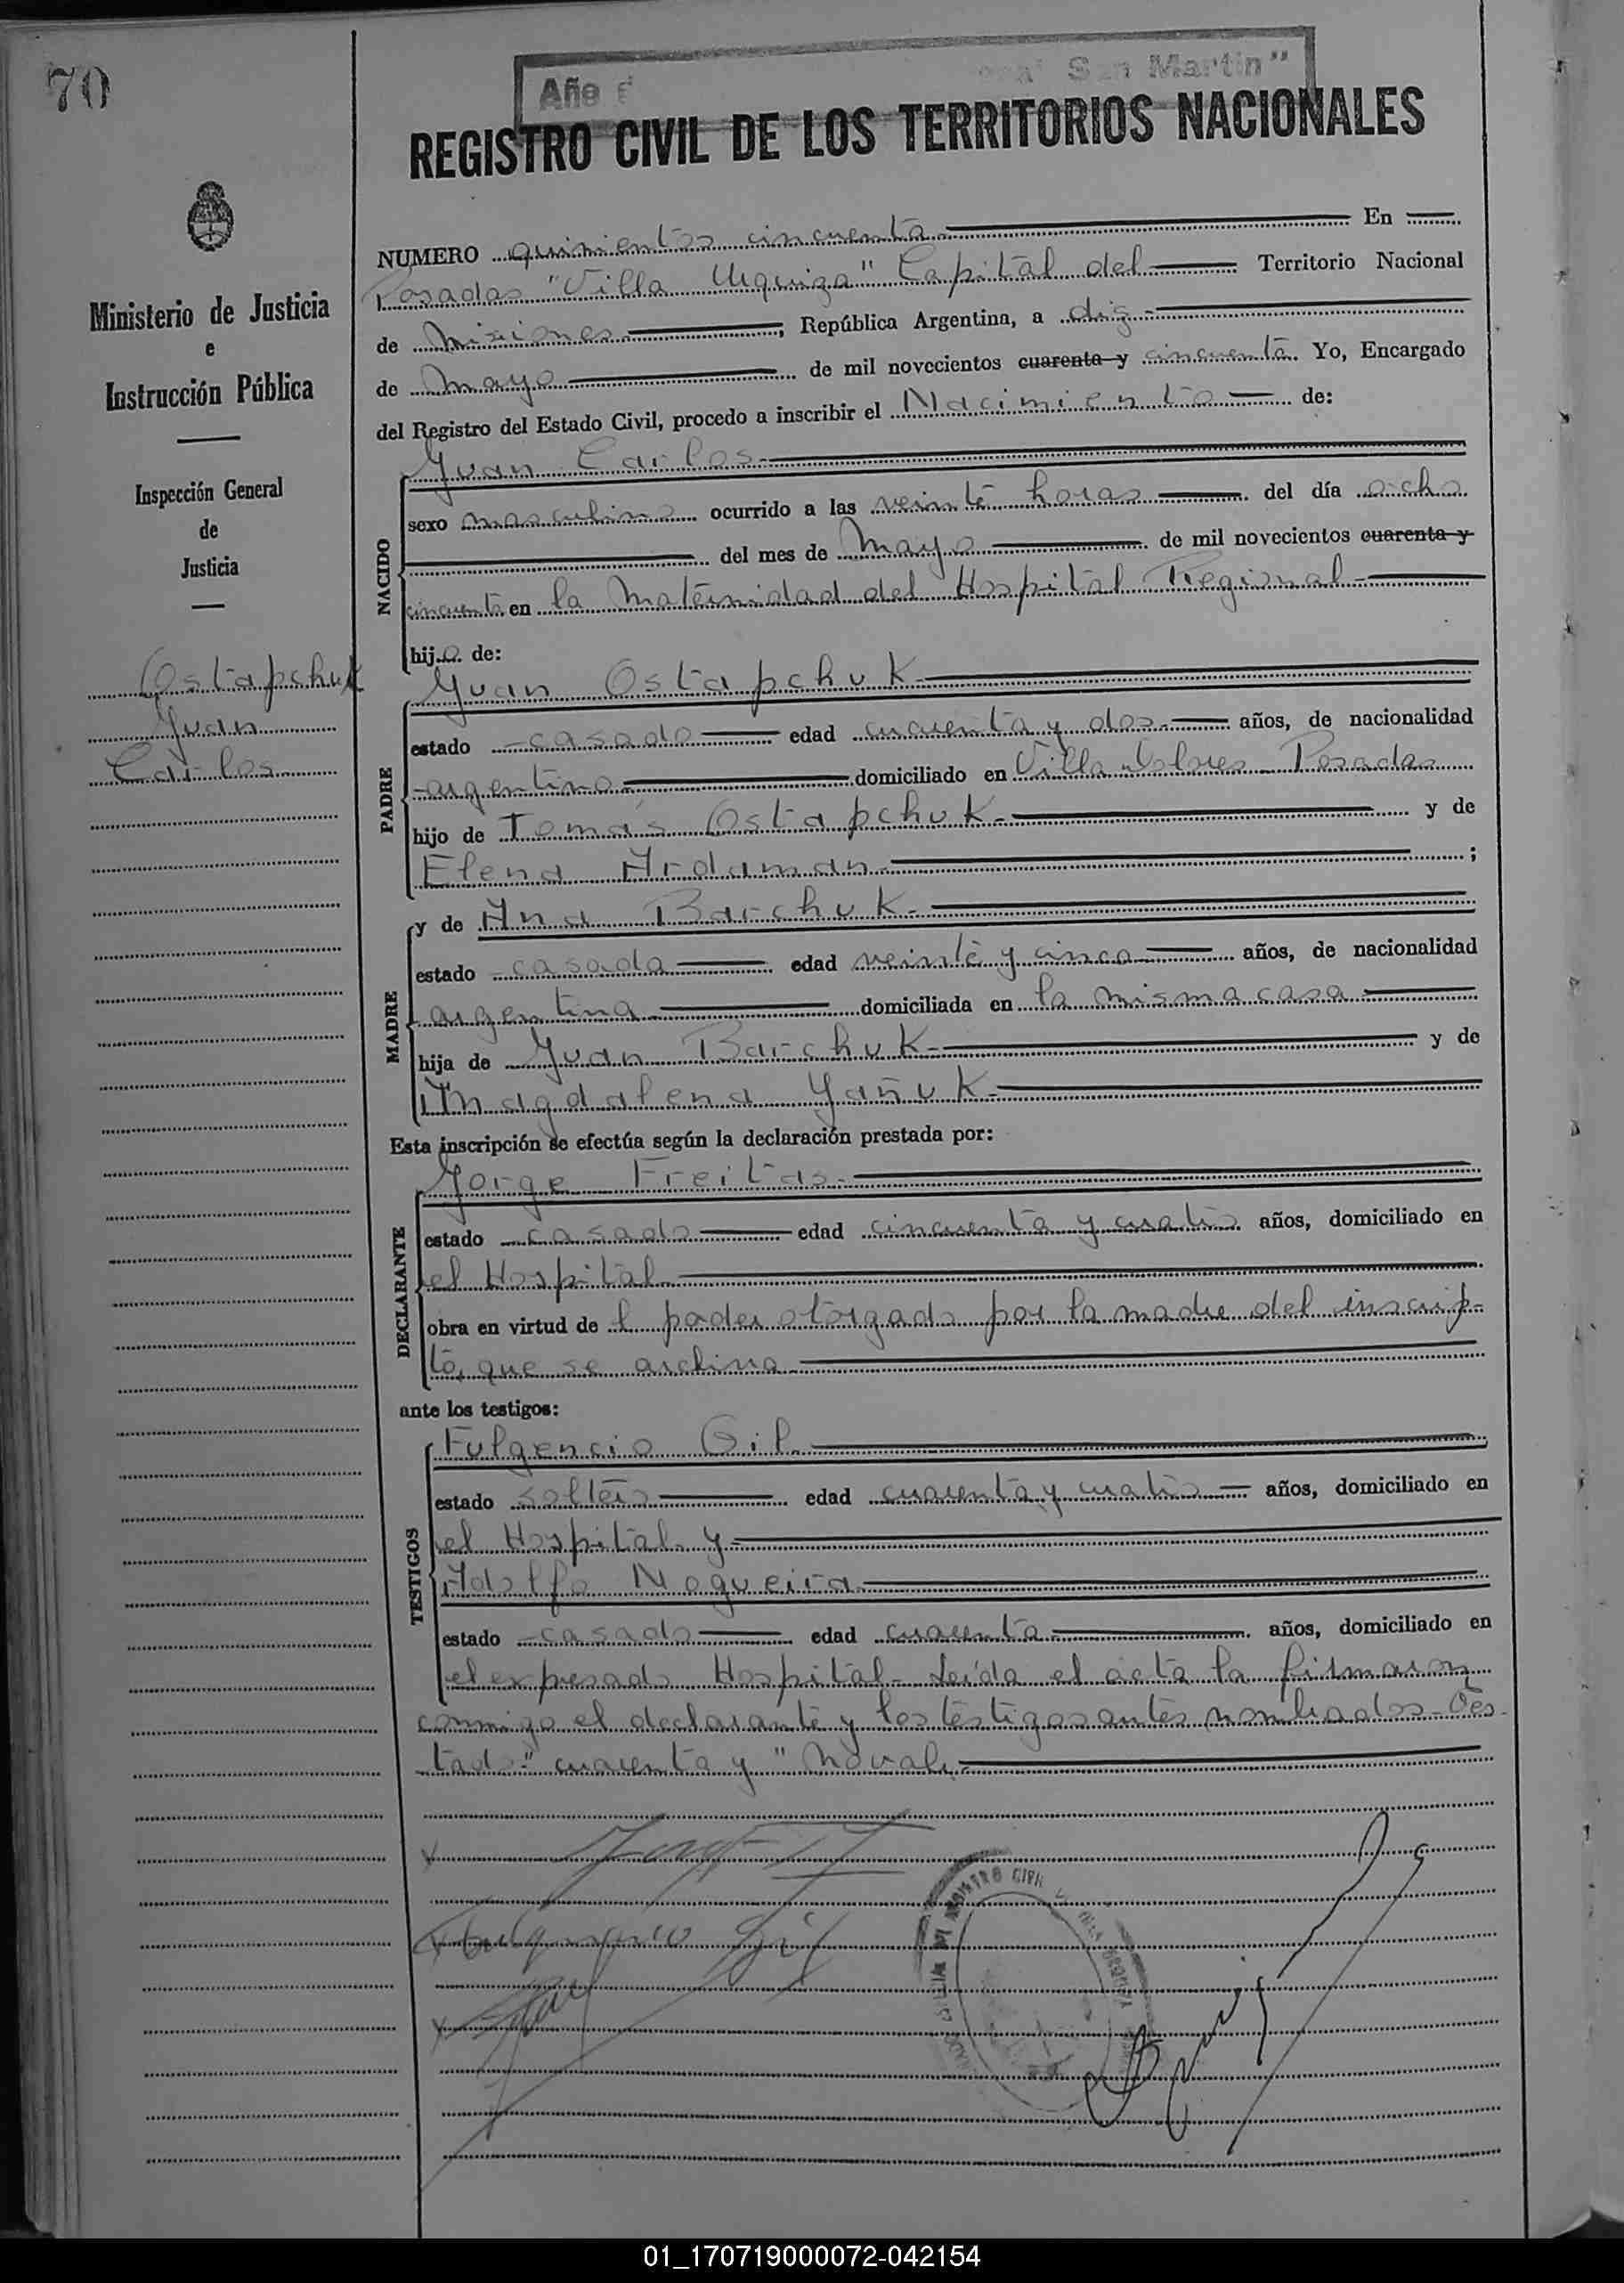 70
Año San Martin"
REGISTRO CIVIL DE LOS TERRITORIOS NACIONALES
Ministerio de Justicia
e
Instrucción Pública
Inspección General
de
Justicia
Ostapchuk
Juan
Carlos
NUMERO quinientos cincuenta En
Posadas "Villa Urquiza" Capital del Territorio Nacional
de Misiones, República Argentina, a diez
de Mayo de mil novecientos cuarenta y cincuenta. Yo, Encargado
del Registro del Estado Civil, procedo a inscribir el Nacimiento de:
NACIDO
Juan Carlos
sexo masculino ocurrido a las veinte horas del día ocho
del mes de Mayo de mil novecientos cuarenta y
cincuenta en la Maternidad del Hospital Regional
hijo de:
PADRE
Juan Ostapchuk
estado casado edad cuarenta y dos años, de nacionalidad
argentino domiciliado en Villa Dolores Posadas
hijo de Tomás Ostapchuk y de
Elena Ardaman;
MADRE
y de Ana Barchuk
estado casada edad veinte y cinco años, de nacionalidad
argentina domiciliada en la misma casa
hija de Juan Barchuk y de
Magdalena Yañuk
Esta inscripción se efectúa según la declaración prestada por:
DECLARANTE
Jorge Freitas
estado casado edad cincuenta y cuatro años, domiciliado en
el Hospital
obra en virtud de l poder otorgado por la madre del inscrip-
to, que se archiva
ante los testigos:
TESTIGOS
Fulgencio Gil
estado soltero edad cuarenta y cuatro años, domiciliado en
el Hospital y
Adolfo Nogueira
estado casado edad cuarenta años, domiciliado en
el expresado Hospital - Leída el acta la firmaron
conmigo el declarante y los testigos antes nombrados - Tes-
tado: "cuarenta y" No vale
Fulgencio Gil
REGISTRO CIVIL
01_170719000072-042154